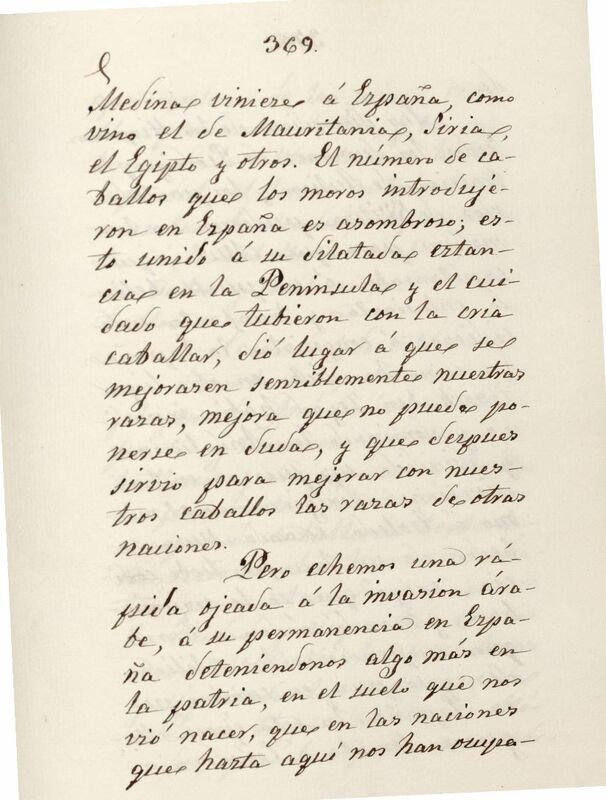 369.
Medina viniere á España, como
vino el de Mauritania, Siria,
el Egipto y otros. El número de ca-
ballos que los moros introdujé-
ron en España es asombroso; es-
to unido á su dilatada estan-
cia en la Peninsula y el cui-
dado que tubieron con la cria
caballar, dió lugar á que se
mejorasen sensiblemente nuestras
razas, mejora que no puede po-
nerse en duda, y que despues
sirvio para mejorar con nues-
tros caballos las razas de otras
naciones.
Pero echemos una rá-
pida ojeada á la invasion ára-
be, á su permanencia en Espa-
ña deteniéndonos algo más en
la patria, en el suelo que nos
vió nacer, que en las naciones
que hasta aquí nos han ocupa-